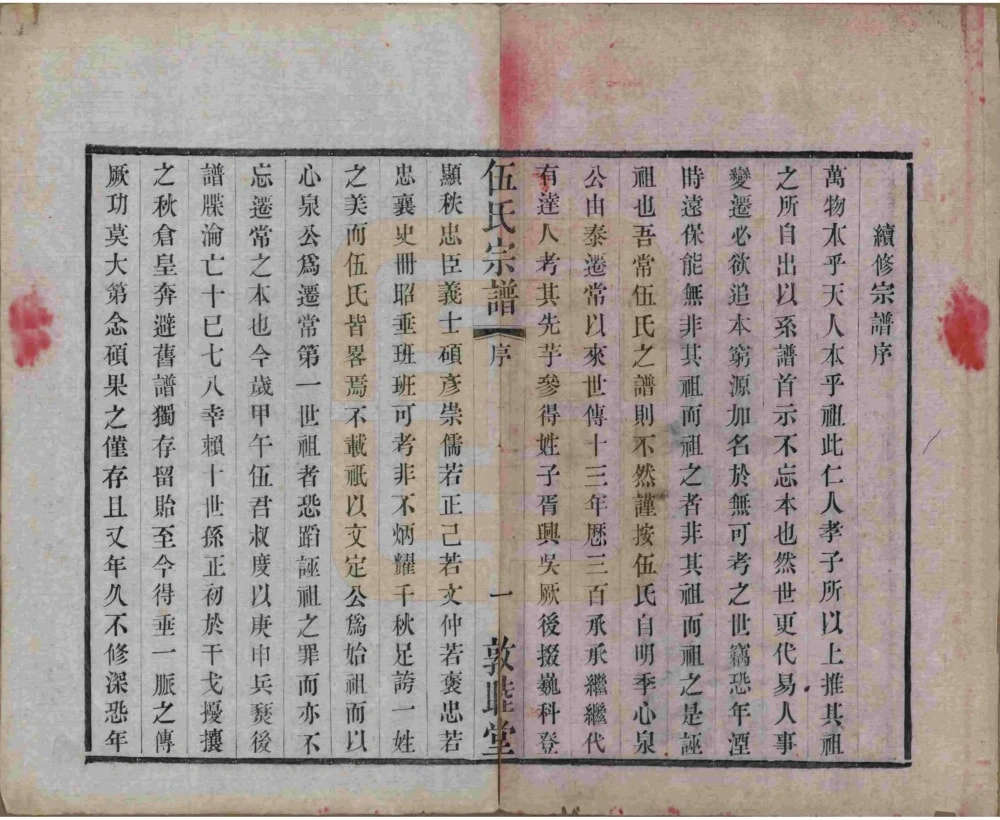 續修宗譜序
萬物本乎天人本乎祖此仁人孝子所以上推其祖
之所自出以系譜首示不忘本也然世更代易人事
變遷必欲追本窮源加名於無可考之世竊恐年湮
時遠保能無非其祖而祖之者非其祖而祖之是誣
祖也吾常伍氏之譜則不然謹按伍氏自明季心泉
公由泰遷常以來世傳十三年歷三百承承繼繼代
有達人考其先芋參得姓子胥興吳厥後掇巍科登
伍氏宗譜 序 一 敦睦堂
顯秩忠臣義士碩彥崇儒若正己若文仲若褒忠若
忠襄史冊昭垂班班可考非不炳耀千秋足誇一姓
之美而伍氏皆畧焉不載祇以文定公爲始祖而以
心泉公爲遷常第一世祖者恐蹈誣祖之罪而亦不
忘遷常之本也今歲甲午伍君叔度以庚申兵燹後
譜牒淪亡十已七八幸賴十世孫正初於干戈擾攘
之秋倉皇奔避舊譜獨存留貽至今得垂一脈之傳
厥功莫大第念碩果之僅存且又年久不修深恐年